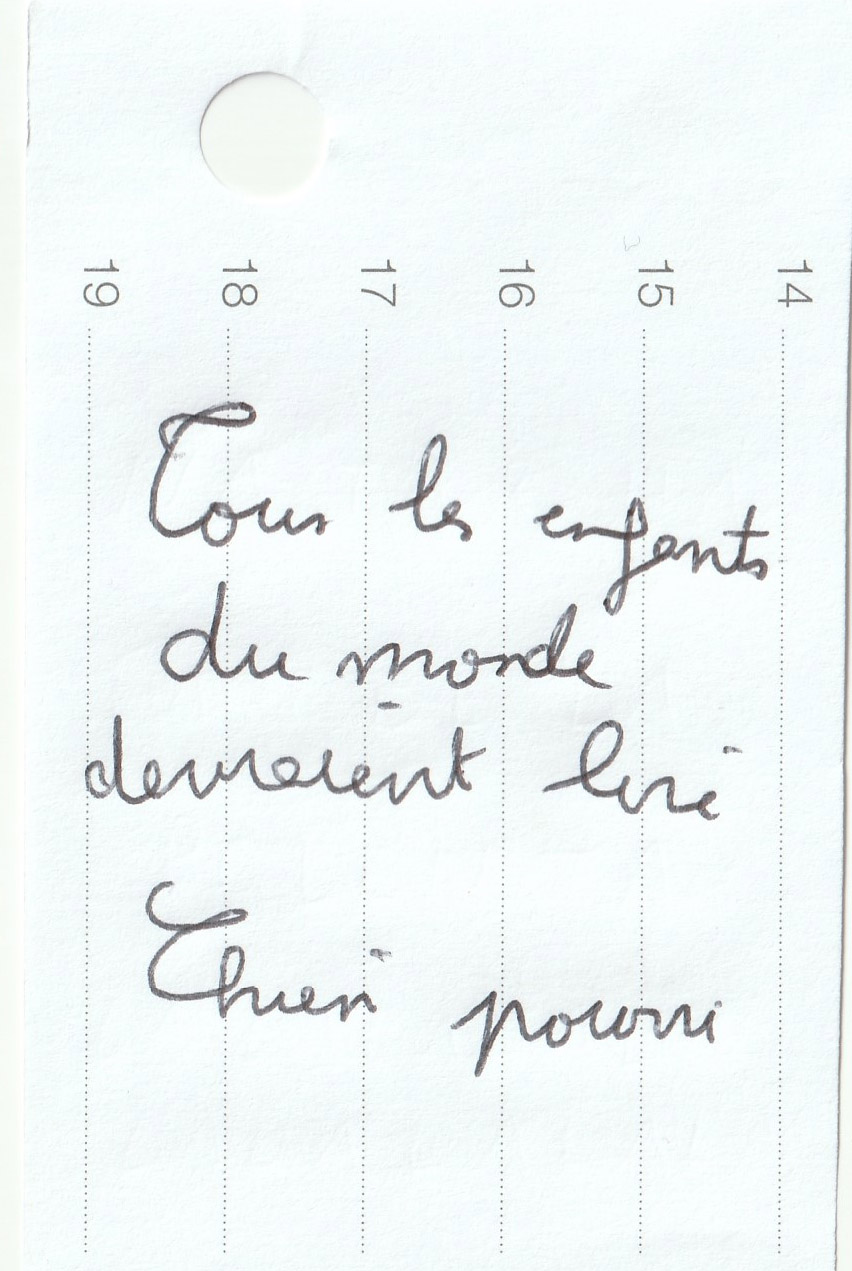 19 18 17 16 15 14
Tous les enfants
du monde
devraient lire
Chien pourri